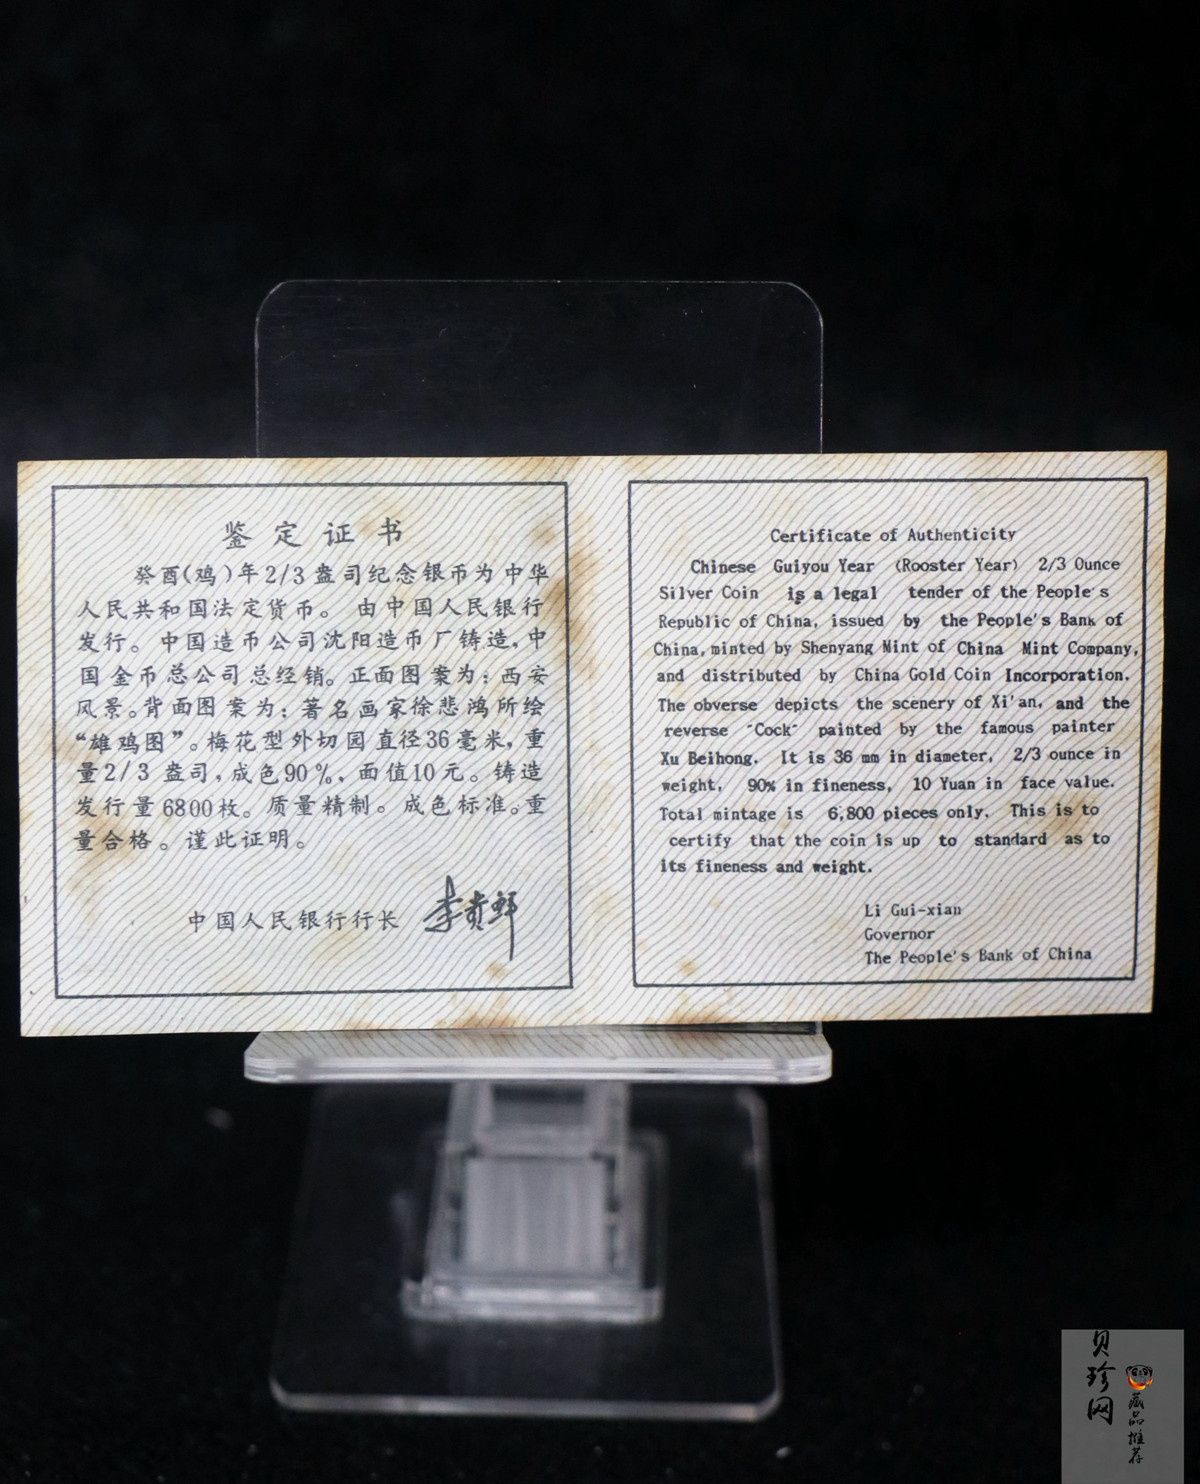 鉴定证书
癸酉(鸡)年2/3盎司纪念银币为中华
人民共和国法定货币。由中国人民银行
发行。中国造币公司沈阳造币厂铸造,中
国金币总公司总经销。正面图案为:西安
风景。背面图案为:著名画家徐悲鸿所绘
“雄鸡图”。梅花型外切园直径36毫米,重
量2/3盎司,成色90%,面值10元。铸造
发行量6800枚。质量精制。成色标准。重
量合格。谨此证明。
中国人民银行行长 李贵鲜
Certificate of Authenticity
Chinese Guiyou Year (Rooster Year) 2/3 Ounce
Silver Coin is a legal tender of the People's
Republic of China, issued by the People's Bank of
China, minted by Shenyang Mint of China Mint Company,
and distributed by China Gold Coin Incorporation.
The obverse depicts the scenery of Xi'an, and the
reverse "Cock" painted by the famous painter
Xu Beihong. It is 36 mm in diameter, 2/3 ounce in
weight, 90% in fineness, 10 Yuan in face value.
Total mintage is 6,800 pieces only. This is to
certify that the coin is up to standard as to
its fineness and weight.
Li Gui-xian
Governor
The People's Bank of China
贝珍网
藏品推荐